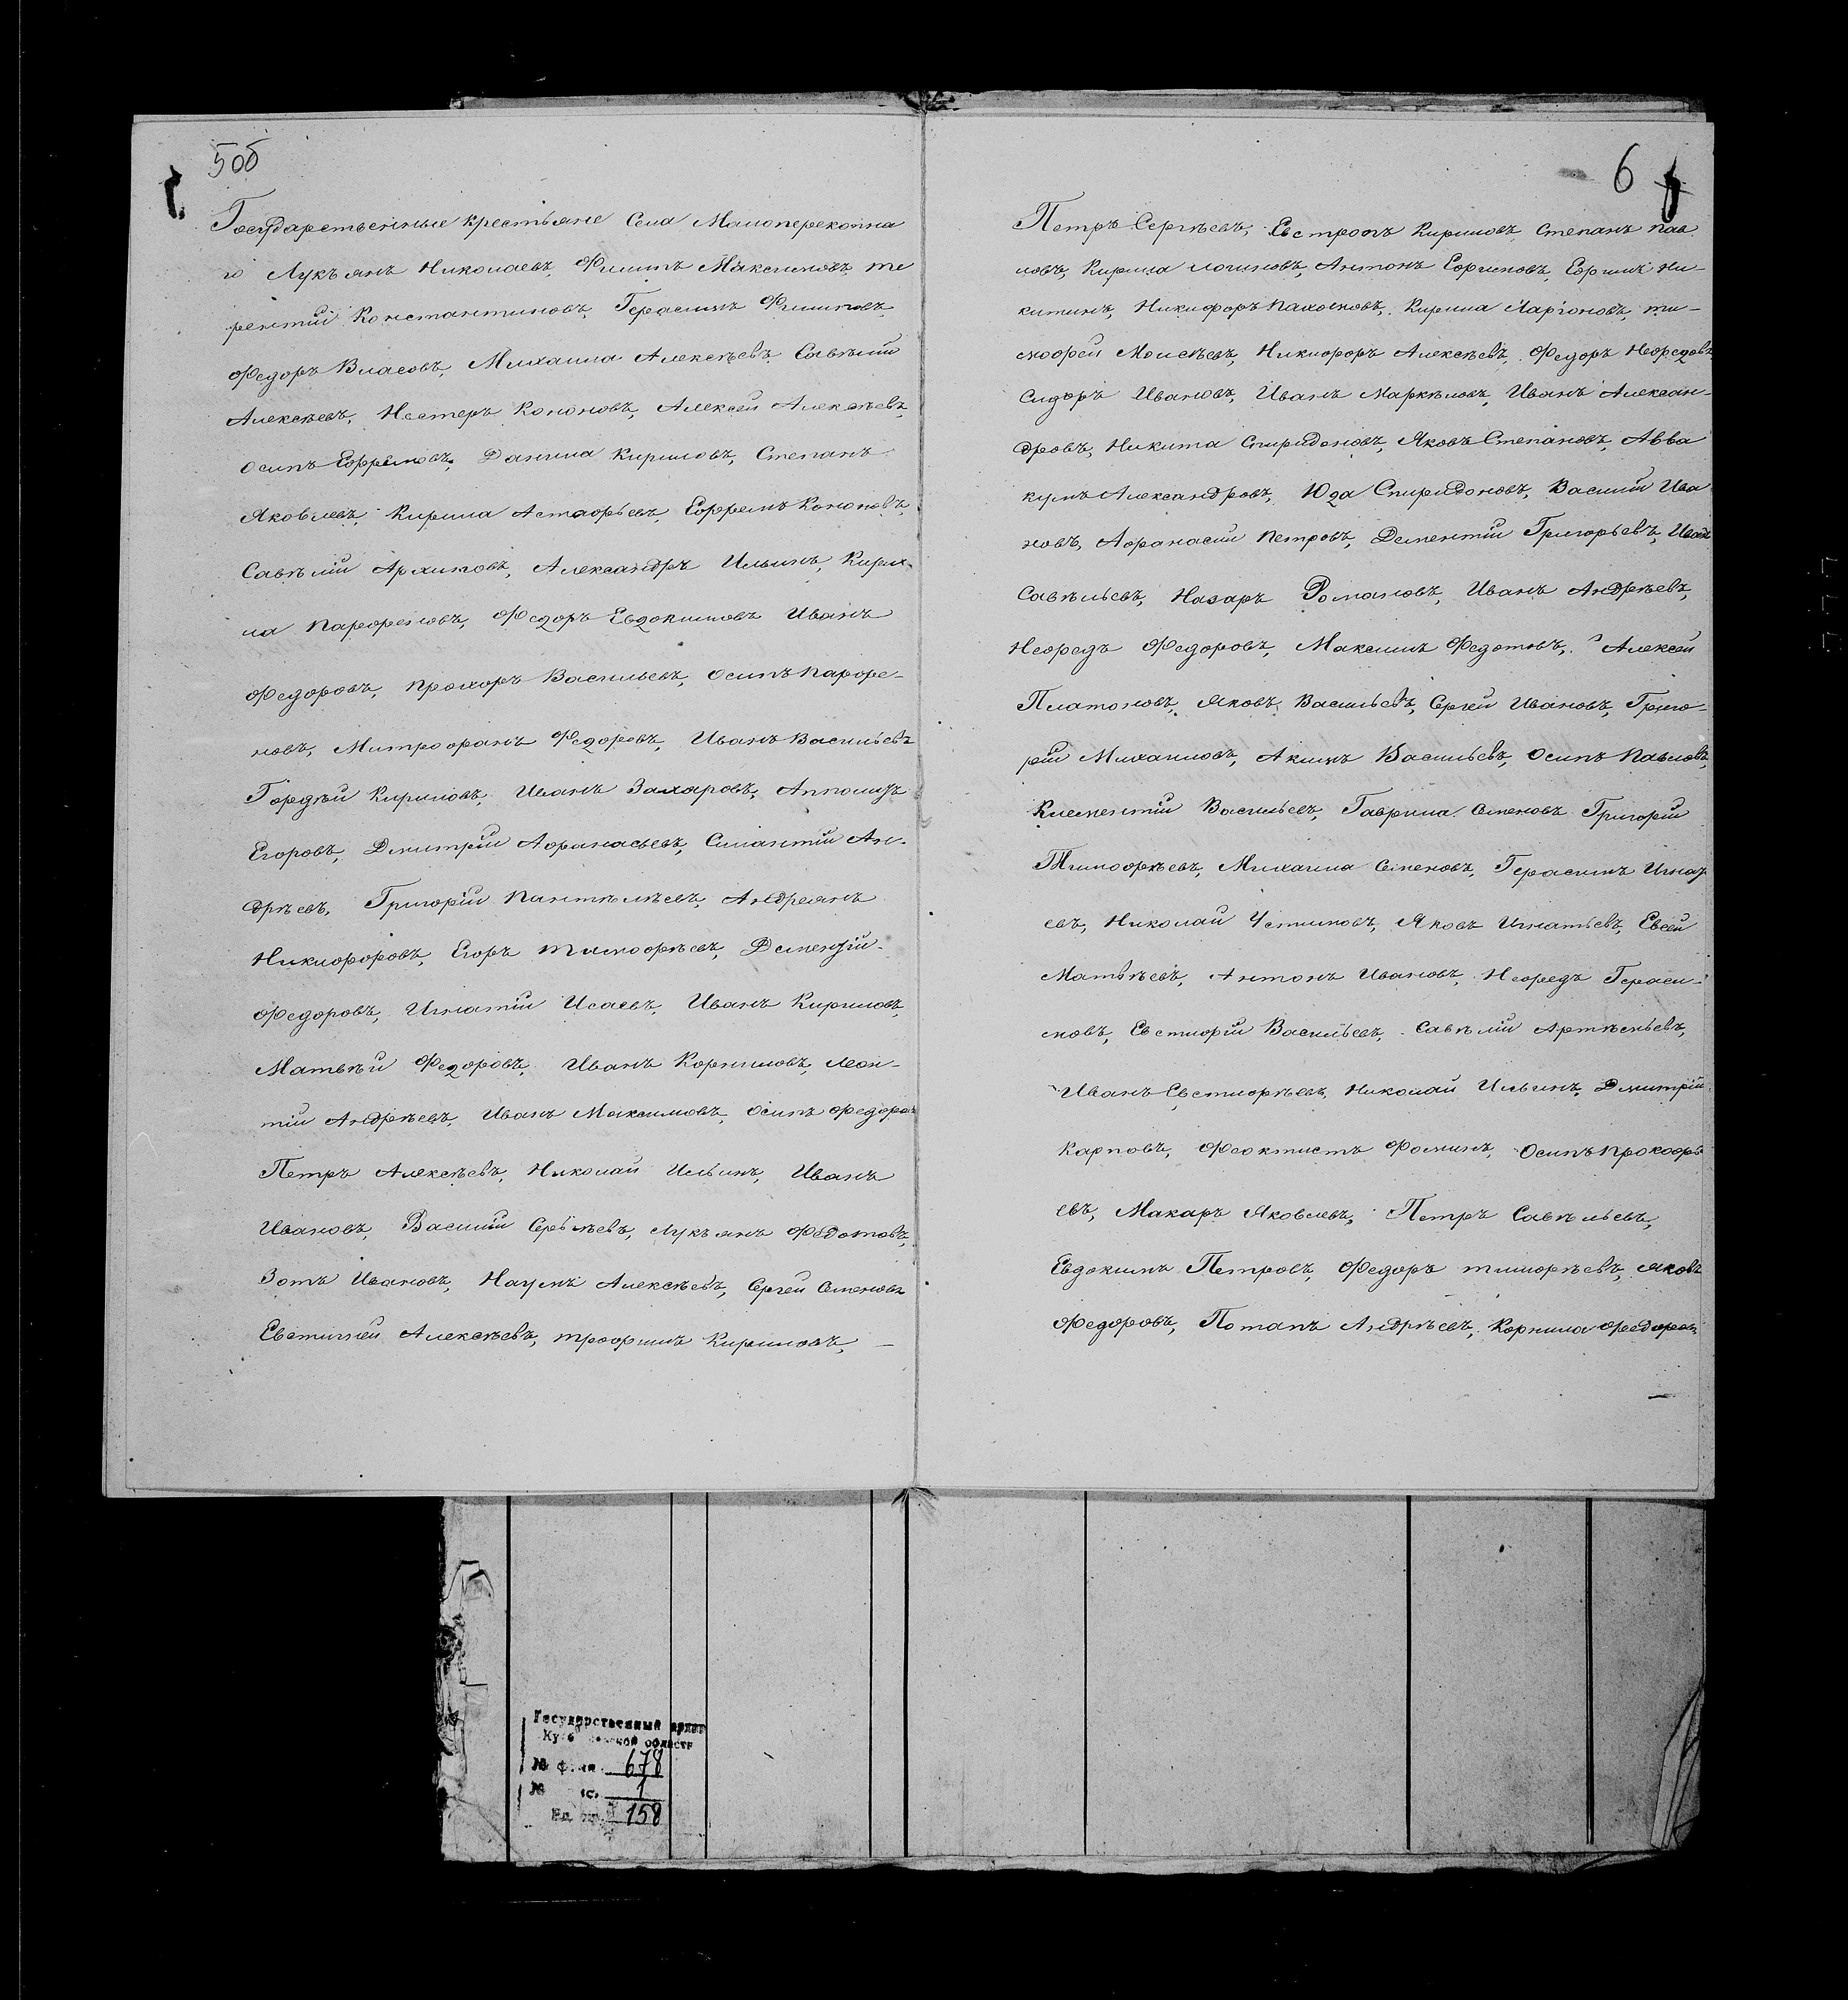 5об
Государственные крестьяне Села Малоперекопна
го Лукъянъ Николаевъ, Филипъ Максимовъ, Те
рентий Константиновъ, Герасимъ Филиповъ,
Федоръ Власовъ, Михаила Алексѣевъ, Савѣлий
Алексѣевъ, Нестеръ Кононовъ, Алексей Алексѣевъ,
Осипъ Ефремовъ, Данила Кириловъ, Степанъ
Яковлевъ, Кирила Астафьевъ, Ефремъ Кононовъ,
Савѣлий Архиповъ, Александръ Ильинъ, Кири-
ла Парфеновъ, Федоръ Евдокимовъ Иванъ
Федоровъ, Прохоръ Васильевъ, Осипъ Парфе-
новъ, Митрофанъ Федоровъ, Иванъ Васильевъ
Гордѣй Кириловъ, Иванъ Захаровъ,
Егоровъ, Дмитрий Афанасьевъ, Силантий Ан-
дрѣевъ, Григорий Пантѣлѣевъ, Андреянъ
Никифоровъ, Егоръ Тимофѣевъ, Дементий
Федоровъ, Игнатий Исаевъ, Иванъ Кириловъ,
Матвѣй Федоровъ, Иванъ Корниловъ, Леон-
тий Андрѣевъ, Иванъ Максимовъ, Осипъ Федоровъ
Петръ Алексѣевъ, Николай Ильинъ, Иванъ
Ивановъ, Василий Сергѣевъ, Лукъянъ Федотовъ,
Зотъ Ивановъ, Наумъ Алексѣевъ, Сергей Семеновъ
Евстигней Алексѣевъ, Трофимъ Кириловъ, —
6
Петръ Сергѣевъ, Евстропъ Кириловъ, Степанъ Пав
ловъ, Кирила Логиновъ, Антонъ Ефимовъ, Ефимъ Ни-
китинъ, Никифоръ Пахомовъ, Кирила Ларионовъ, Ти-
мофей Моисѣевъ, Никифоръ Алексѣевъ, Федоръ Нефедовъ
Сидоръ Ивановъ, Иванъ Маркѣловъ, Иванъ Алексан-
дровъ, Никита Спиридоновъ, Яковъ Степановъ, Авва
кумъ Александровъ, Юда Спиридоновъ, Василий Ива
новъ, Афанасий Петровъ, Дементий Григорьевъ, Иванъ
Савѣльевъ, Назаръ Романовъ, Иванъ Андрѣевъ,
Нефедъ Федоровъ, Максимъ Федотовъ, Алексей
Платоновъ, Яковъ Васильевъ, Сергей Ивановъ, Григо-
рий Михаиловъ, Акимъ Васильевъ, Осипъ Павловъ,
Клементий Васильевъ, Гаврила Семеновъ Григорий
Тимофѣевъ, Михаила Семеновъ, Герасимъ Игнать
евъ, Николай Устиновъ, Яковъ Игнатьевъ, Евсей
Матвѣевъ, Антонъ Ивановъ, Нефедъ Гераси-
мовъ, Евстифий Васильевъ, Савѣлий Артѣмьевъ,
Иванъ Евстифѣевъ, Николай Ильинъ, Дмитрий
Карповъ, Феоктистъ Фоминъ, Осипъ Прокофь
евъ, Макаръ Яковлевъ, Петръ Савѣльевъ,
Евдокимъ Петровъ, Федоръ Тимофѣевъ, Яковъ
Федоровъ, Потапъ Андрѣевъ, Корнила Федоровъ
—
Государственный архив
области
№ 678
№ 1
158